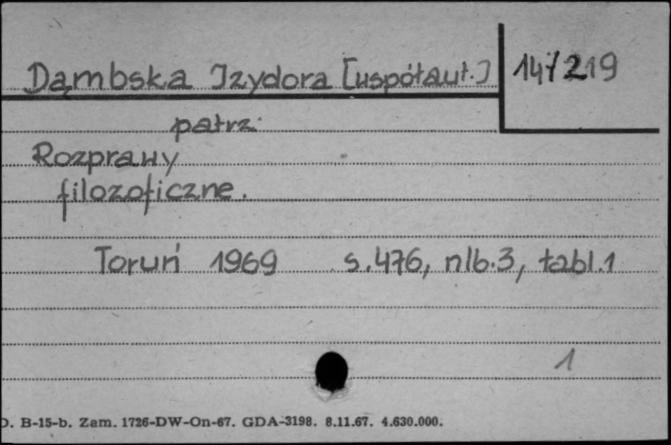 Dąmbska Izydora [współaut.]
147219
patrz
Rozprawy
filozoficzne.
Toruń 1969 s.476, nlb.3, tabl.1
1
D. B-15-b. Zam. 1726-DW-On-67. GDA-3198. 8.11.67. 4.630.000.